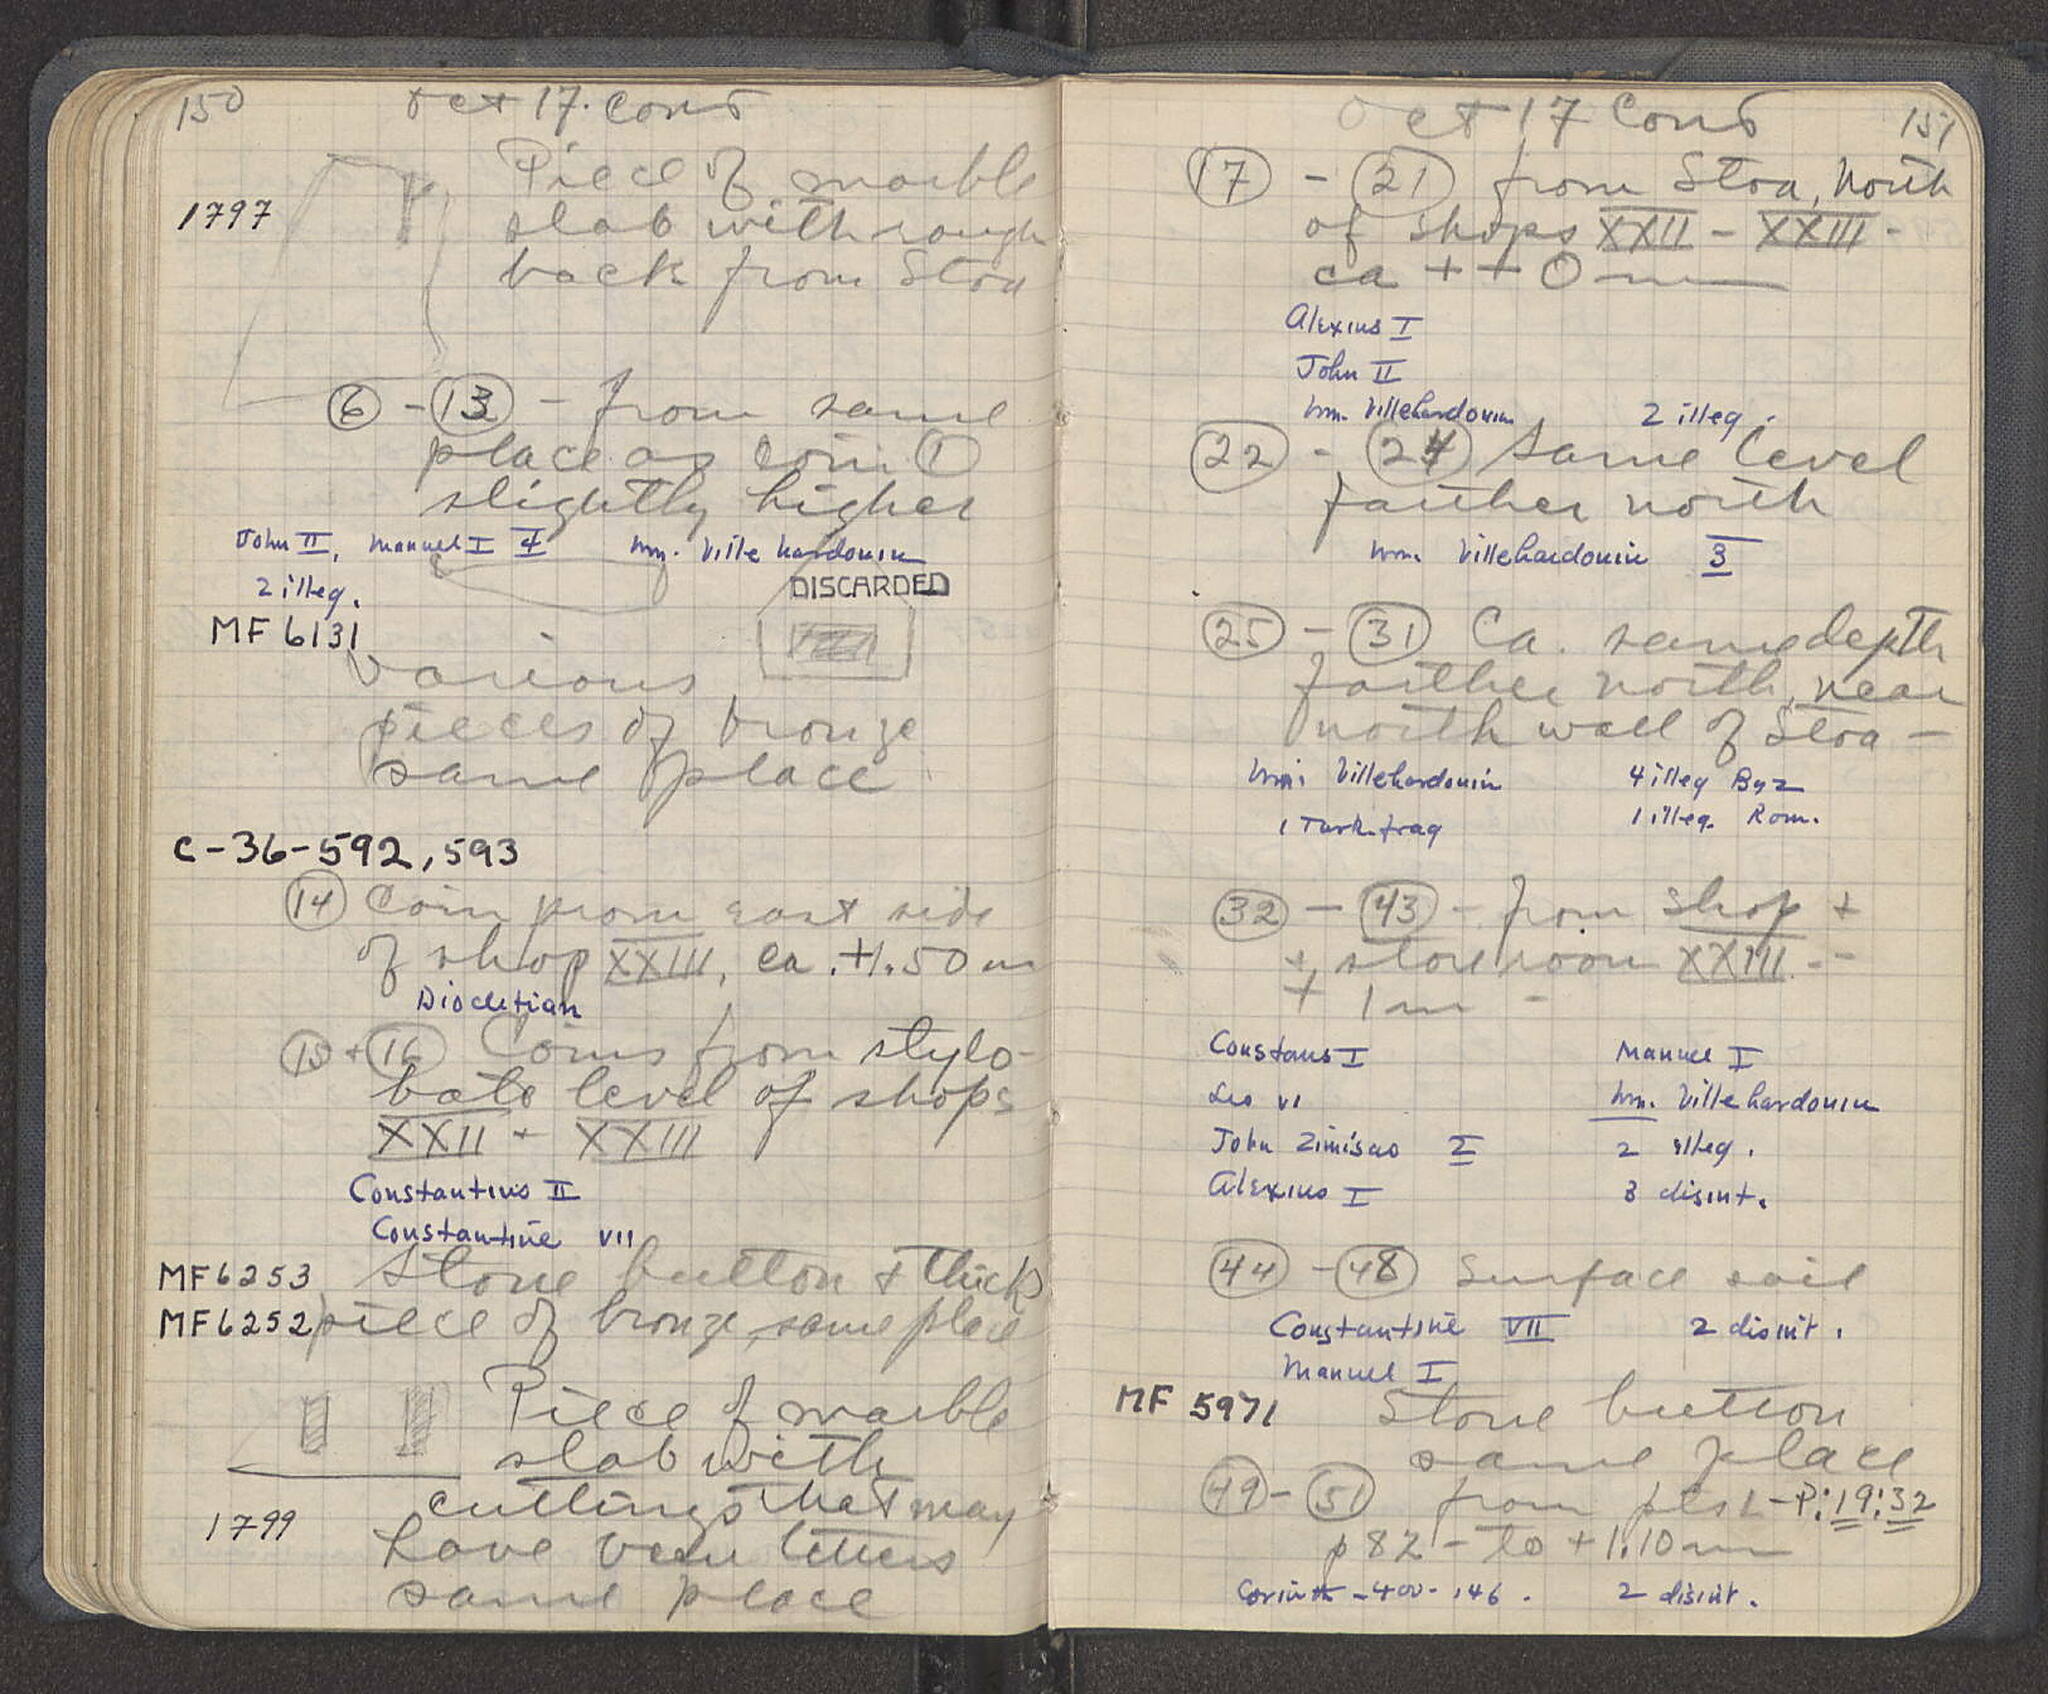 150 Oct 17. Cont
Piece of marble
1797 slab with rough
back from Stoa
6 - 13 - from same
place as coin 1
slightly higher
John II, Manuel I 4 Wm. Villehardouin
2 illeg. DISCARDED
MF 6131
various
pieces of bronze
same place
C-36-592, 593
14 Coin from east side
of shop XXIII, ca. +1.50 m
Diocletian
15 + 16 Coins from stylo-
bate level of shops
XXII + XXIII
Constantius II
Constantine VII
MF 6253 Stone button + thick
MF 6252 piece of bronze, same place
Piece of marble
slab with
cuttings that may
1799 have been letters
same place
Oct 17 Cont 151
17 - 21 from Stoa, North
of shops XXII - XXIII -
ca + - 0 m
Alexius I
John II
Wm. Villehardouin 2 illeg.
22 - 24 same level
farther north
Wm. Villehardouin 3
25 - 31 Ca. same depth
farther north, near
north wall of Stoa -
Wm. Villehardouin 4 illeg Byz
1 Turk. frag 1 illeg. Rom.
32 - 43 - from shop +
+ store room XXIII --
+ 1 m -
Constans I Manuel I
Leo VI Wm. Villehardouin
John Zimisces 2 2 illeg.
Alexius I 3 disint.
44 - 48 Surface soil
Constantine VII 2 disint.
Manuel I
MF 5971 Stone button
same place
49 - 51 from - P:19:32
p 82 - to + 1.10 m
Corinth - 400 - 146. 2 disint.